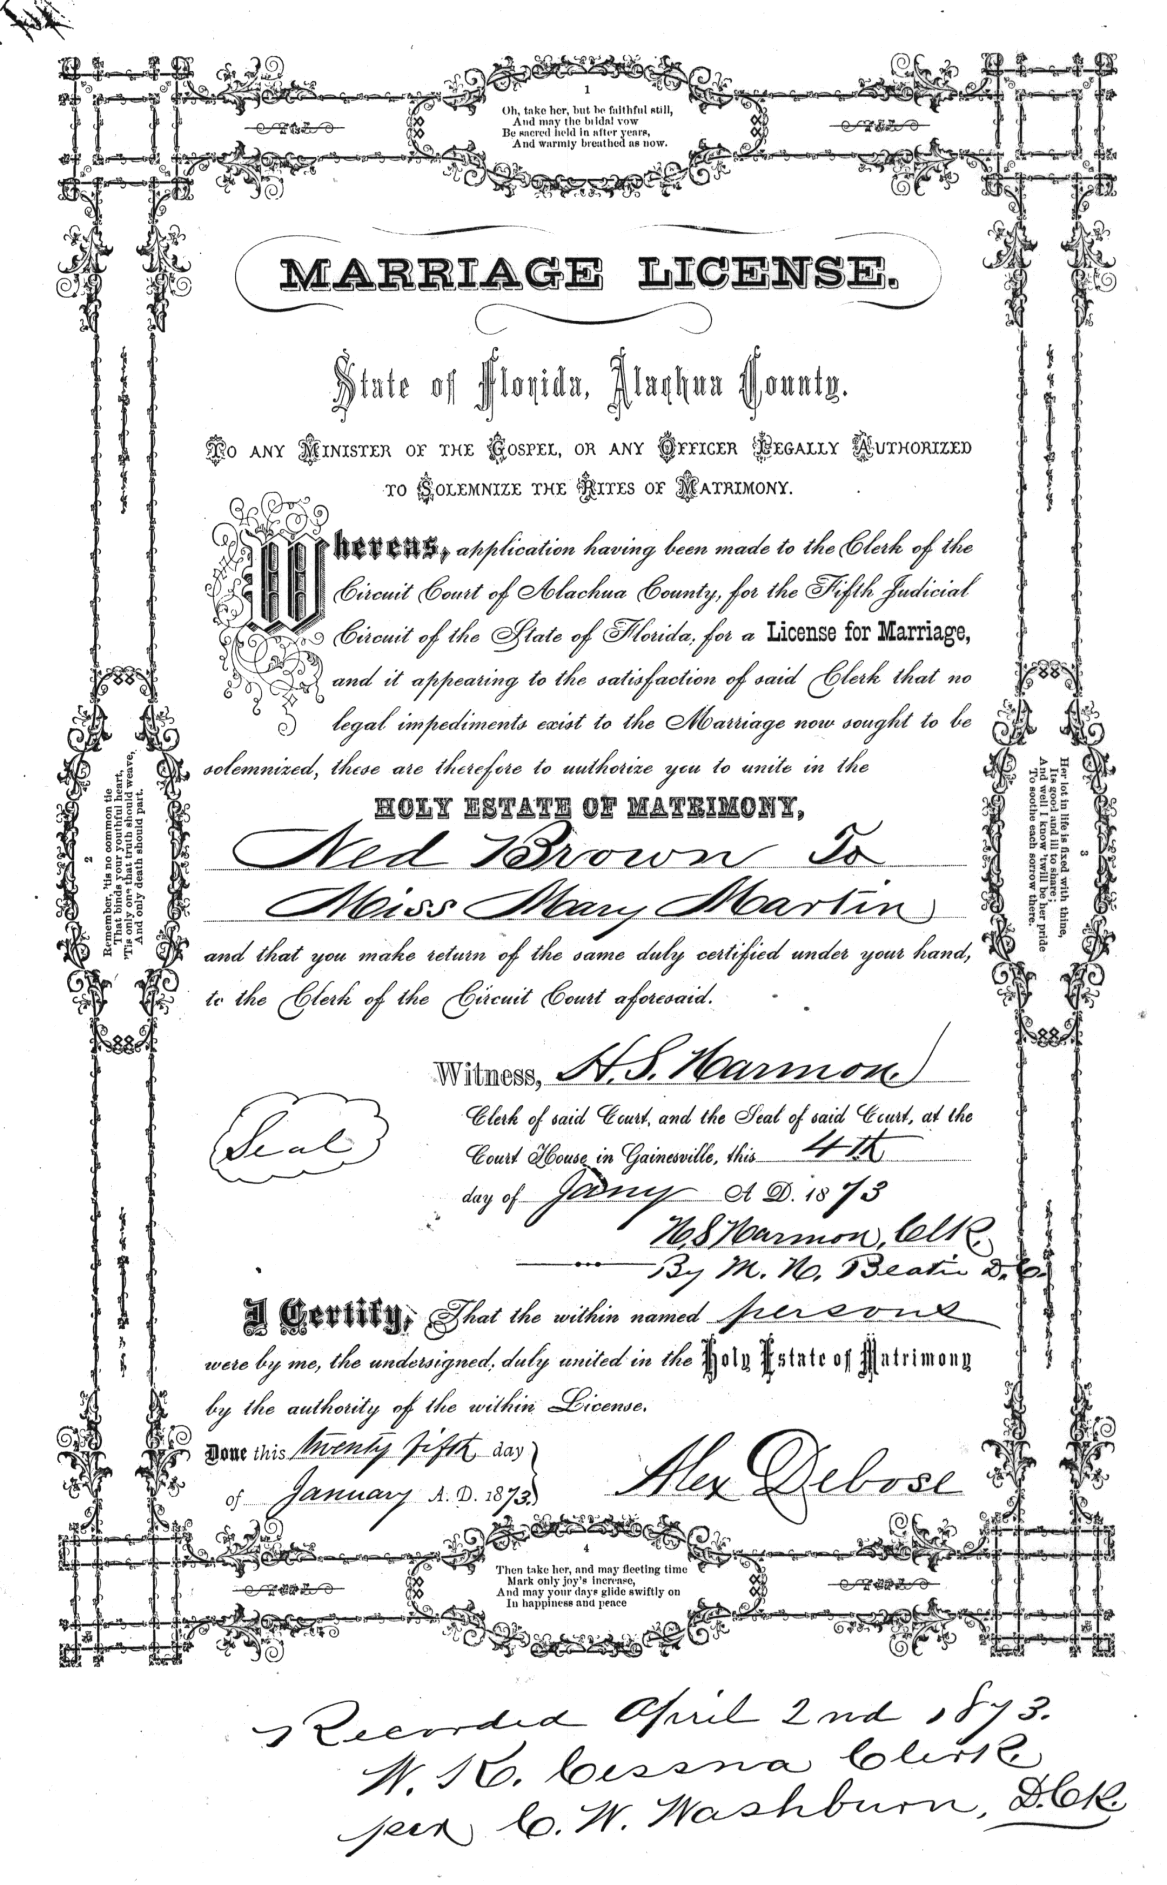 1
Oh, take her, but be faithful still,
And may the bridal vow
Be sacred held in after years,
And warmly breathed as now.
MARRIAGE LICENSE.
State of Florida, Alachua County.
TO ANY MINISTER OF THE GOSPEL, OR ANY OFFICER LEGALLY AUTHORIZED
TO SOLEMNIZE THE RITES OF MATRIMONY.
Whereas, application having been made to the Clerk of the
Circuit Court of Alachua County, for the Fifth Judicial
Circuit of the State of Florida, for a License for Marriage,
and it appearing to the satisfaction of said Clerk that no
legal impediments exist to the Marriage now sought to be
solemnized, these are therefore to authorize you to unite in the
HOLY ESTATE OF MATRIMONY,
Ned Brown To
Miss Mary Martin
and that you make return of the same duly certified under your hand,
to the Clerk of the Circuit Court aforesaid.
2
Remember, 'tis no common tie
That binds your youthful heart,
'Tis only one that truth should weave,
And only death should part.
3
Her lot in life is fixed with thine,
Its good and ill to share;
And well I know 'twill be her pride
To soothe each sorrow there.
Witness, H. S. Harmon.
Seal
Clerk of said Court, and the Seal of said Court, at the
Court House in Gainesville, this 4th
day of Jany A D. 1873
H. S Harmon, Clk.
By M. H. Beatie D. C.
I Certify, That the within named persons
were by me, the undersigned, duly united in the Holy Estate of Matrimony
by the authority of the within License.
Done this twenty fifth day
of January A. D. 1873.
Alex Debose
4
Then take her, and may fleeting time
Mark only joy's increase,
And may your days glide swiftly on
In happiness and peace
Recorded April 2nd 1873.
W. K. Cessna Clerk
per C. W. Washburn, D. Ck.